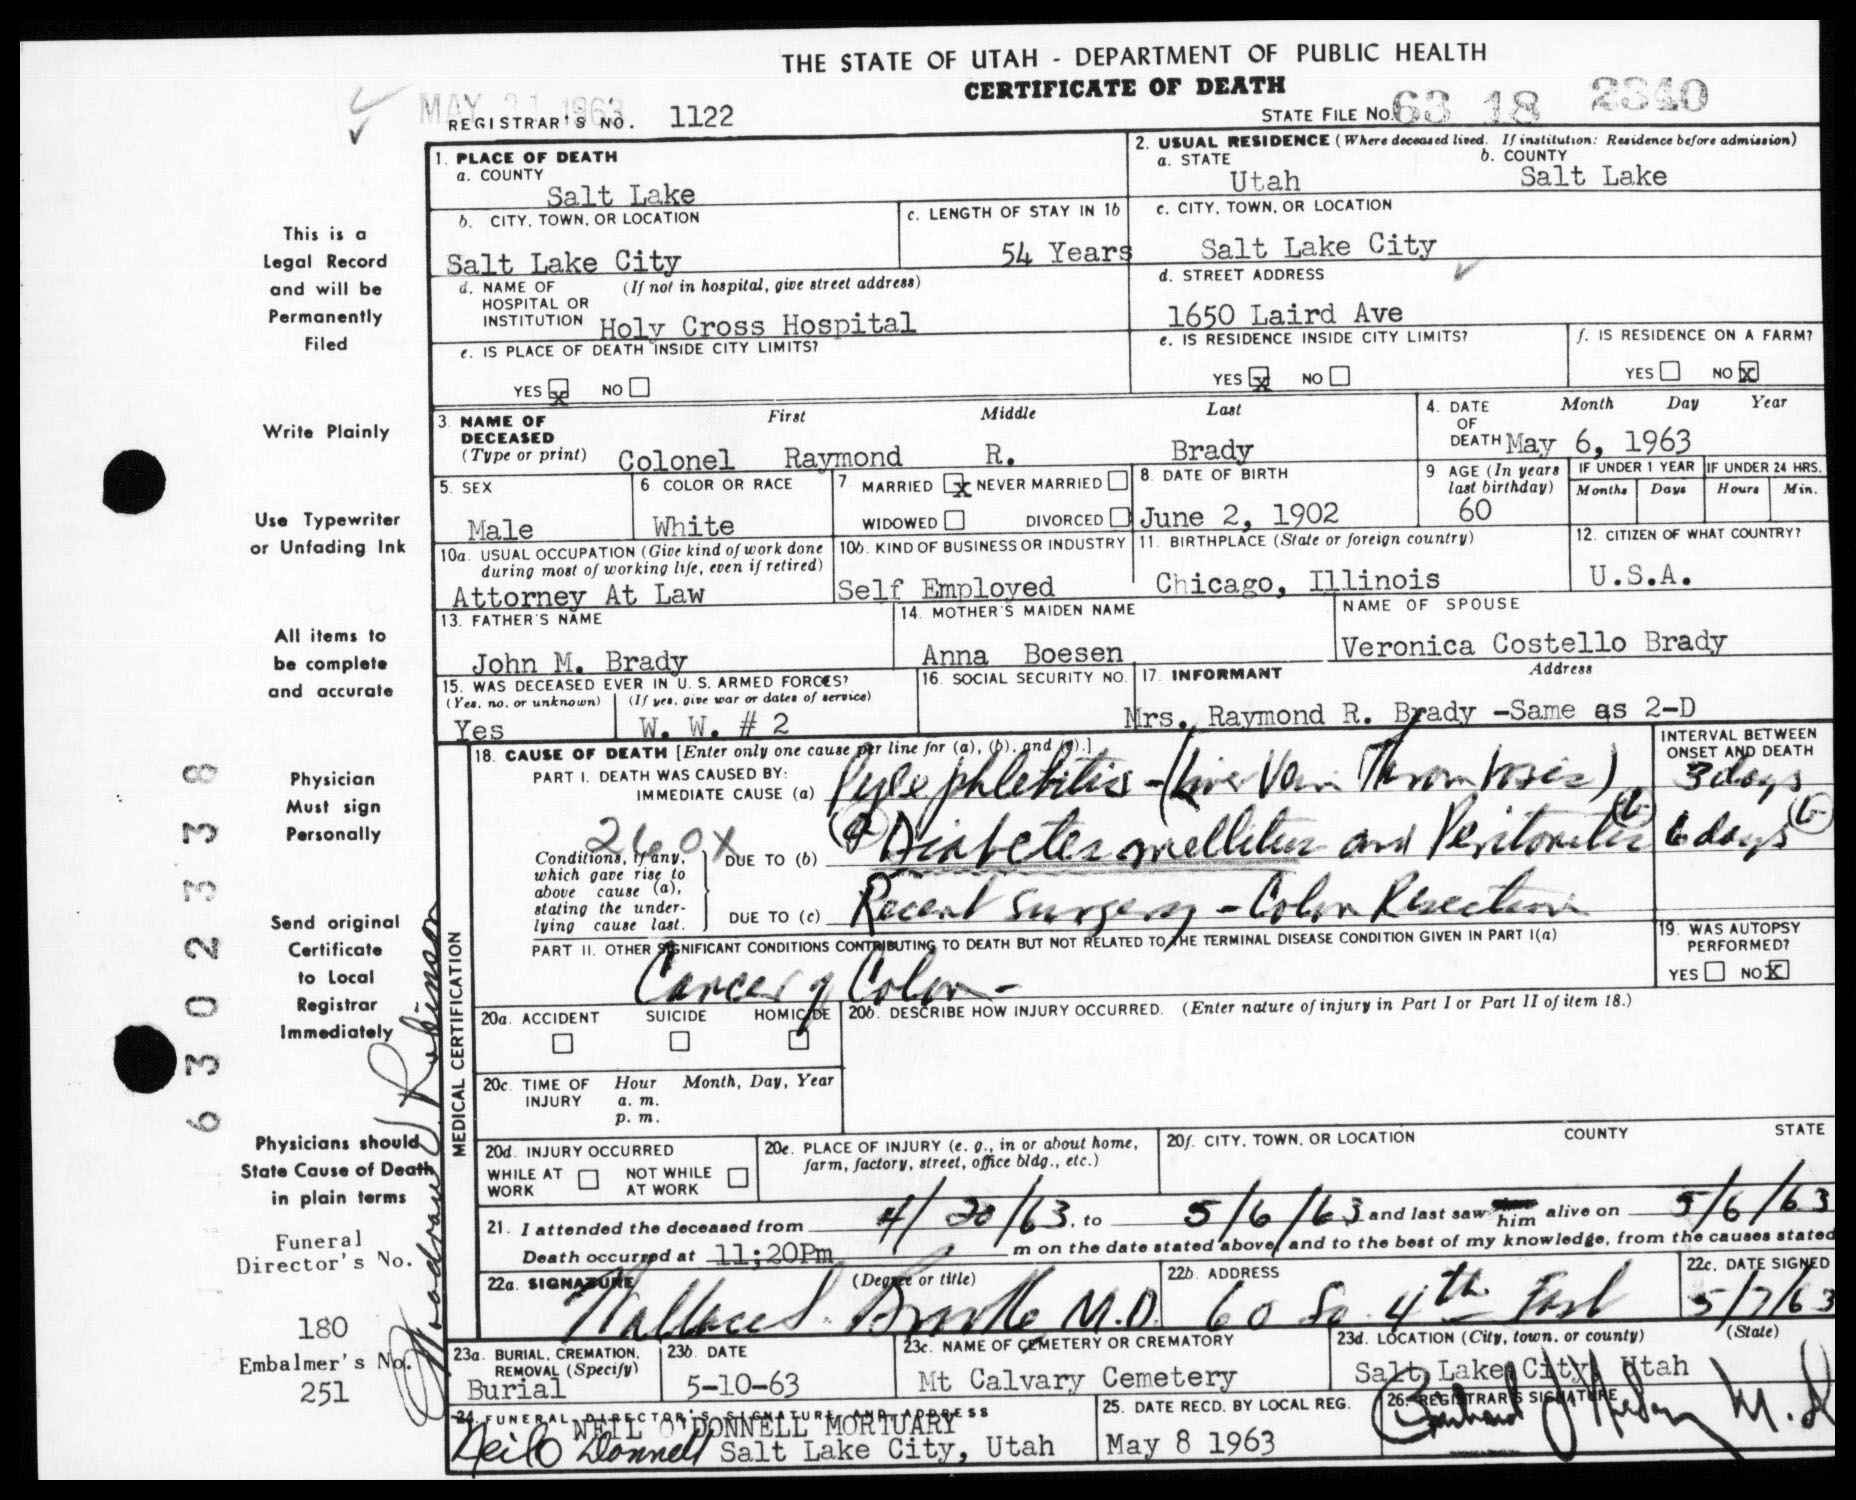 THE STATE OF UTAH - DEPARTMENT OF PUBLIC HEALTH
CERTIFICATE OF DEATH
MAY 21 1963
REGISTRAR'S NO. 1122
STATE FILE NO. 63 18 2340
1. PLACE OF DEATH
a. COUNTY
Salt Lake
2. USUAL RESIDENCE (Where deceased lived. If institution: Residence before admission)
a. STATE b. COUNTY
Utah Salt Lake
b. CITY, TOWN, OR LOCATION
Salt Lake City
c. LENGTH OF STAY IN 1b
54 Years
c. CITY, TOWN, OR LOCATION
Salt Lake City
d. NAME OF (If not in hospital, give street address)
HOSPITAL OR
INSTITUTION Holy Cross Hospital
d. STREET ADDRESS
1650 Laird Ave
e. IS PLACE OF DEATH INSIDE CITY LIMITS?
YES X NO
e. IS RESIDENCE INSIDE CITY LIMITS?
YES X NO
f. IS RESIDENCE ON A FARM?
YES NO X
3. NAME OF First Middle Last
DECEASED
(Type or print) Colonel Raymond R. Brady
4. DATE Month Day Year
OF
DEATH May 6, 1963
5. SEX
Male
6. COLOR OR RACE
White
7. MARRIED X NEVER MARRIED
WIDOWED DIVORCED
8. DATE OF BIRTH
June 2, 1902
9 AGE (In years
last birthday)
60
IF UNDER 1 YEAR IF UNDER 24 HRS.
Months Days Hours Min.
10a. USUAL OCCUPATION (Give kind of work done
during most of working life, even if retired)
Attorney At Law
10b. KIND OF BUSINESS OR INDUSTRY
Self Employed
11. BIRTHPLACE (State or foreign country)
Chicago, Illinois
12. CITIZEN OF WHAT COUNTRY?
U.S.A.
13. FATHER'S NAME
John M. Brady
14. MOTHER'S MAIDEN NAME
Anna Boesen
NAME OF SPOUSE
Veronica Costello Brady
15. WAS DECEASED EVER IN U. S. ARMED FORCES?
(Yes, no, or unknown) (If yes, give war or dates of service)
Yes W. W. # 2
16. SOCIAL SECURITY NO.
17. INFORMANT Address
Mrs. Raymond R. Brady -Same as 2-D
18. CAUSE OF DEATH [Enter only one cause per line for (a), (b), and (c).]
INTERVAL BETWEEN
ONSET AND DEATH
PART I. DEATH WAS CAUSED BY:
IMMEDIATE CAUSE (a) Pylephlebitis - (Liver Vein Thrombosis) 3 days
260X
Conditions, if any,
which gave rise to
above cause (a),
stating the under-
lying cause last.
DUE TO (b) Diabetes mellitus and Peritonitis 6 days
DUE TO (c) Recent surgery - Colon Resection
PART II. OTHER SIGNIFICANT CONDITIONS CONTRIBUTING TO DEATH BUT NOT RELATED TO THE TERMINAL DISEASE CONDITION GIVEN IN PART I(a)
Cancer of Colon -
19. WAS AUTOPSY
PERFORMED?
YES NO X
MEDICAL CERTIFICATION
20a. ACCIDENT SUICIDE HOMICIDE
20b. DESCRIBE HOW INJURY OCCURRED. (Enter nature of injury in Part I or Part II of item 18.)
20c. TIME OF Hour Month, Day, Year
INJURY a. m.
p. m.
20d. INJURY OCCURRED
WHILE AT NOT WHILE
WORK AT WORK
20e. PLACE OF INJURY (e. g., in or about home,
farm, factory, street, office bldg., etc.)
20f. CITY, TOWN, OR LOCATION COUNTY STATE
21. I attended the deceased from 4/20/63, to 5/6/63 and last saw him alive on 5/6/63
Death occurred at 11;20Pm m on the date stated above, and to the best of my knowledge, from the causes stated
22a. SIGNATURE (Degree or title)
Wallace S. Brooke M.D.
22b. ADDRESS
60 So. 4th East
22c. DATE SIGNED
5/7/63
23a. BURIAL, CREMATION,
REMOVAL (Specify)
Burial
23b. DATE
5-10-63
23c. NAME OF CEMETERY OR CREMATORY
Mt Calvary Cemetery
23d. LOCATION (City, town, or county) (State)
Salt Lake City, Utah
24. FUNERAL DIRECTOR'S SIGNATURE AND ADDRESS
NEIL O'DONNELL MORTUARY
Neil O'Donnell Salt Lake City, Utah
25. DATE RECD. BY LOCAL REG.
May 8 1963
26. REGISTRAR'S SIGNATURE
M.D.
This is a
Legal Record
and will be
Permanently
Filed
Write Plainly
Use Typewriter
or Unfading Ink
All items to
be complete
and accurate
Physician
Must sign
Personally
Send original
Certificate
to Local
Registrar
Immediately
Physicians should
State Cause of Death
in plain terms
Funeral
Director's No.
180
Embalmer's No.
251
Robinson
6302338